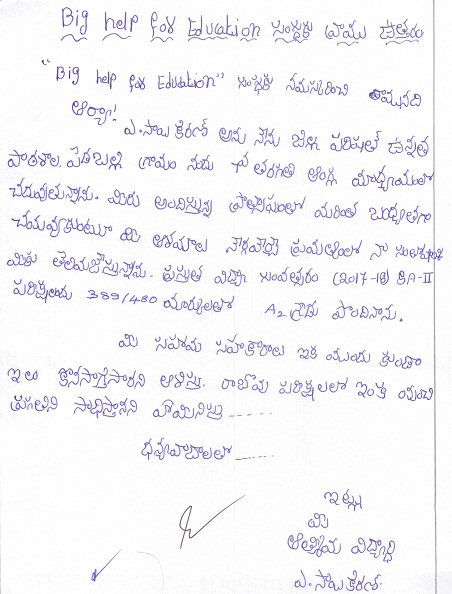 Big help for Education సంస్థకు వ్రాయు ఉత్తరం
"Big help for Education" సంస్థకు నమస్కరించి వ్రాయునది
ఆర్యా!
ఎ.సాయి కిరణ్ అను నేను జిల్లా పరిషత్ ఉన్నత
పాఠశాల, పెదబల్లి గ్రామం నందు తరగతి ఆంగ్ల మాధ్యమంలో
చదువుతున్నాను. మీరు అందిస్తున్న ప్రోత్సాహంతో మరింత బాధ్యతగా
చదువుకుంటూ మీ ఆశయాల ప్రయత్నంలో నా
మీకు తెలియజేస్తున్నాను. ప్రస్తుత విద్యా సంవత్సరం (2017-18) SA-II
పరీక్షలందు 389/480 మార్కులతో A2 గ్రేడు పొందినాను.
మీ సహాయ సహకారాలు ఇక ముందు కూడా
ఇలా కొనసాగిస్తారని ఆశిస్తు, రాబోవు పరీక్షలలో ఇంత మించి
ప్రగతిని సాధిస్తానని హామినిస్తు ------
ధన్యవాదాలతో ------
ఇట్లు
మీ
ఆత్మీయ విద్యార్థి
ఎ.సాయి కిరణ్.